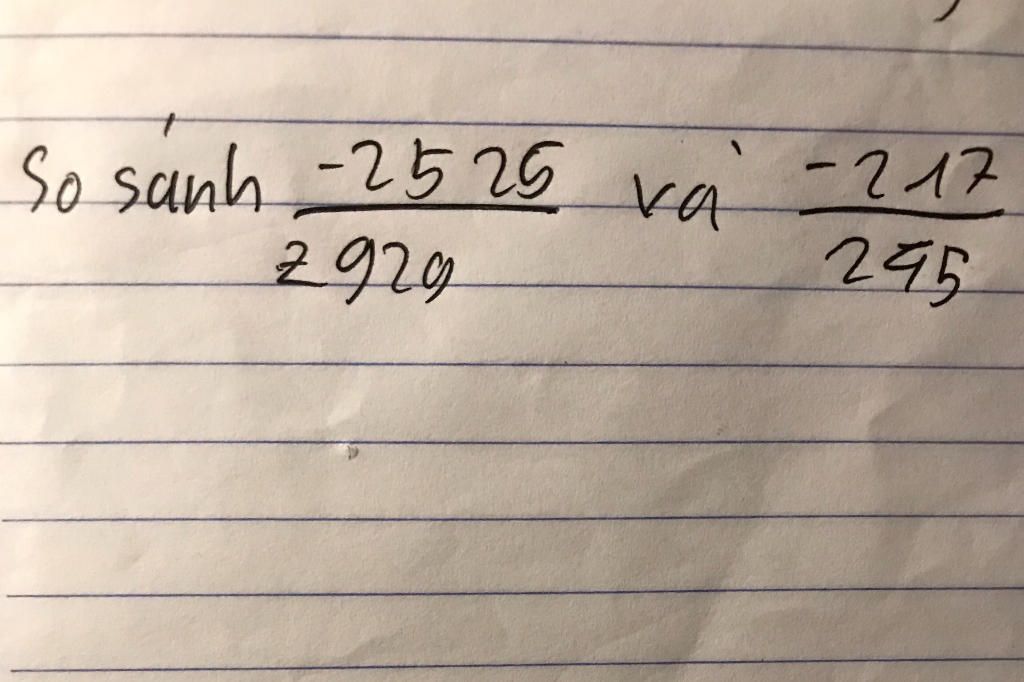 So sánh -2525/2929 và -217/245